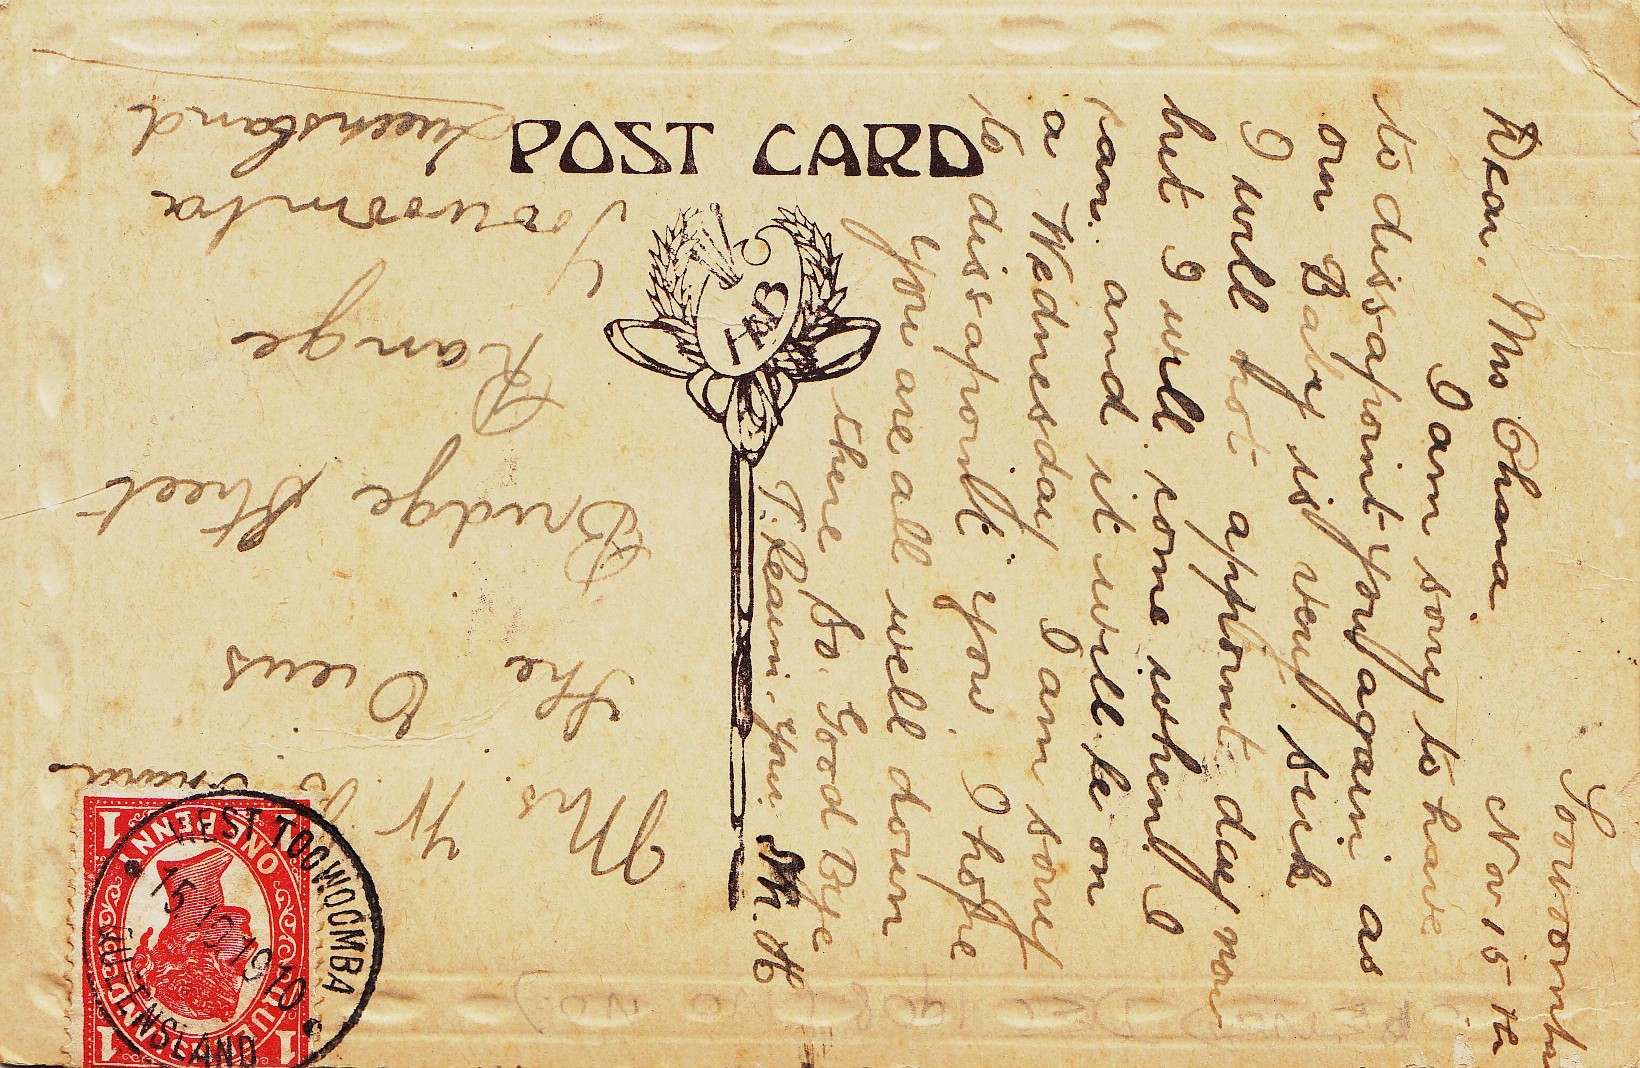 POST CARD
Toowoomba
Nov 15th
Dear, Mrs Ohana
I am sorry to have
to dissapoint you again. as
our Baby is very. sick
I will not appoint day now
but I will come when I
can. and it will be on
a Wednesday I am sorry
to dissapoint you. I hope
you are all well down
there So. Good Bye
I. Remain. your.
M. H
Mrs
W.
The View
Bridge Street
Range
Toowoomba
Queensland
WEST TOOWOOMBA
15 1910
QUEENSLAND
ONE PENNY
QUEENSLAND
1
1
1
1